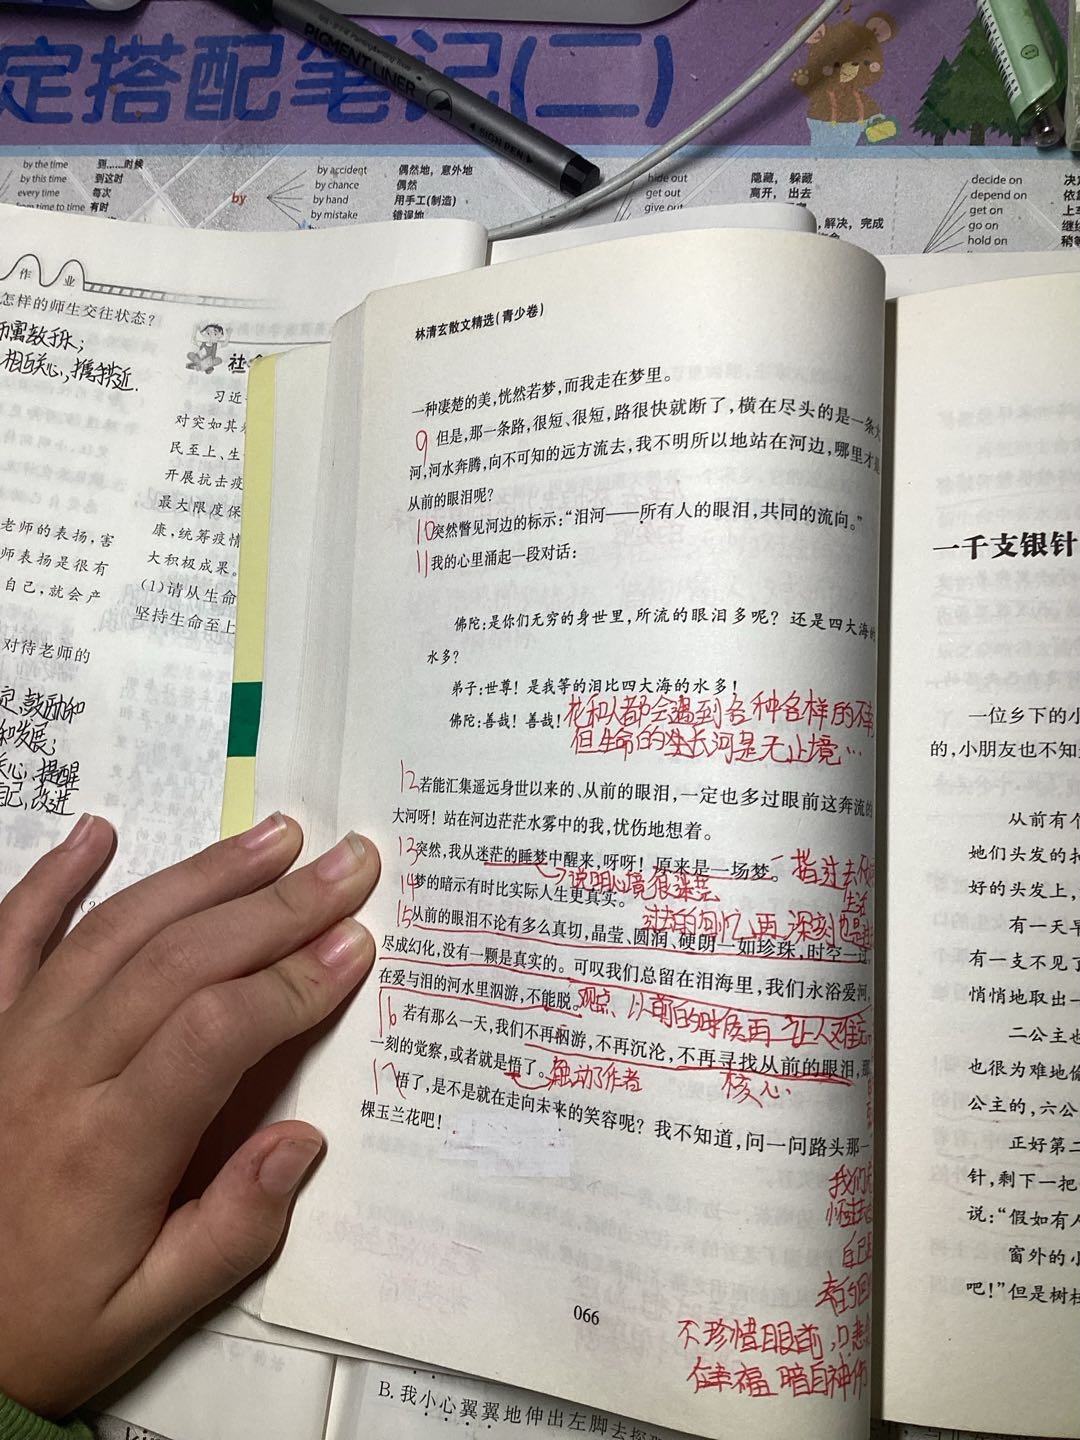 定搭配笔记(二)
PIGMENT LINER
SIGN PEN
by the time 到……时候
by this time 到这时
every time 每次
from time to time 有时
by
by accident 偶然地，意外地
by chance 偶然
by hand 用手工(制造)
by mistake 错误地
hide out 隐藏，躲藏
get out 离开，出去
give out
，解决，完成
decide on 决定
depend on 依靠
get on
go on 继续
hold on 稍等
作业
怎样的师生交往状态？
相互关心，携手共进.
习近
对突如其
民至上、生
开展抗击疫
最大限度保
康，统筹疫情
大积极成果。
(1)请从生命
坚持生命至上
老师的表扬，害
师表扬是很有
自己，就会产
对待老师的
定、鼓励和
和发展；
关心，提醒
自己，改进
林清玄散文精选(青少卷)
一种凄楚的美，恍然若梦，而我走在梦里。
9 但是，那一条路，很短、很短，路很快就断了，横在尽头的是一条大
河，河水奔腾，向不可知的远方流去，我不明所以地站在河边，哪里才是
从前的眼泪呢？
10 突然瞥见河边的标示：“泪河——所有人的眼泪，共同的流向。”
11 我的心里涌起一段对话：
佛陀：是你们无穷的身世里，所流的眼泪多呢？还是四大海的
水多？
弟子：世尊！是我等的泪比四大海的水多！
佛陀：善哉！善哉！
花和人都会遇到各种各样的不幸
但生命的生长河是无止境…
12 若能汇集遥远身世以来的、从前的眼泪，一定也多过眼前这奔流的
大河呀！站在河边茫茫水雾中的我，忧伤地想着。
13 突然，我从迷茫的睡梦中醒来，呀呀！原来是一场梦。
指过去
生活
说明心境很迷茫
14 梦的暗示有时比实际人生更真实。
过去的回忆更深刻
15 从前的眼泪不论有多么真切，晶莹、圆润、硬朗一如珍珠，时空一过，
尽成幻化，没有一颗是真实的。可叹我们总留在泪海里，我们永浴爱河，
在爱与泪的河水里泅游，不能脱。
观点
16 若有那么一天，我们不再泅游，不再沉沦，不再寻找从前的眼泪，那
一刻的觉察，或者就是悟了。
触动了作者
核心
17 悟了，是不是就在走向未来的笑容呢？我不知道，问一问路头那一
棵玉兰花吧！
我们
自己
不珍惜眼前，只
在幸福 暗自神伤
066
一千支银针
一位乡下的小
的，小朋友也不知
从前有个
她们头发的
好的头发上，
有一天早
有一支不见了
悄悄地取出一
二公主也
也很为难地偷
公主的，六公
正好第二
针，剩下一把
说：“假如有人
窗外的小
吧！”但是树枝
B. 我小心翼翼地伸出左脚去探